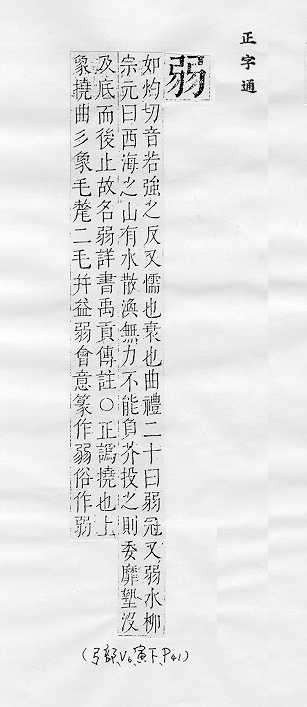 正字通
弱
如灼切音若強之反又懦也衰也曲禮二十曰弱冠又弱水柳
宗元曰西海之山有水散渙無力不能負芥投之則委靡墊沒
及底而後止故名弱詳書禹貢傳註○正譌撓也上
象撓曲彡象毛氂二毛幷益弱會意篆作弱俗作弱
(弓部、V6、寅下、P41)